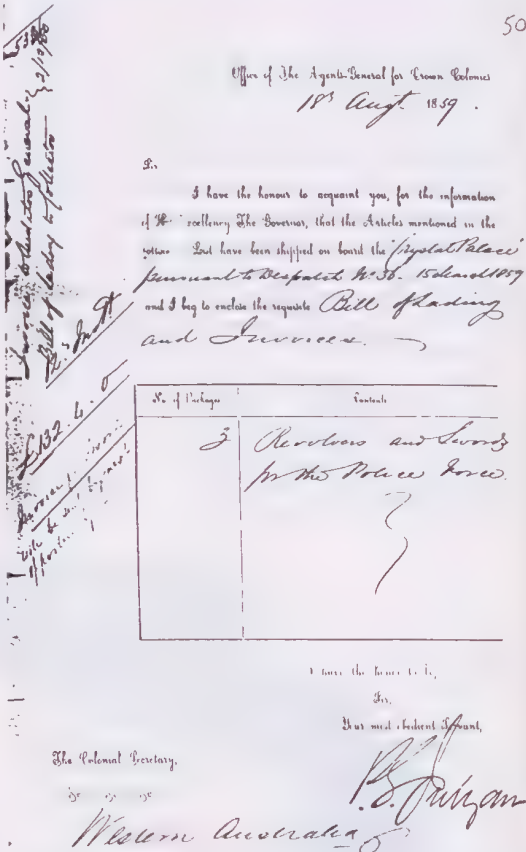 50
Office of The Agents-General for Crown Colonies
18th Augt. 1859.
Sir
I have the honour to acquaint you, for the information
of H cellency The Governor, that the Articles mentioned in the
List have been shipped on board the 'Crystal Palace'
pursuant to Despatch No. 36. 15 March 1859
and I beg to enclose the requisite Bill of Lading
and Invoices.
No. of Packages Contents
3 Revolvers and Swords
for the Police Force.
I have the honor to be,
Sir,
Your most obedient Servant,
The Colonial Secretary,
&c &c &c
Western Australia
Invoice to Auditor General
Bill of Lading to Collector
£132.4.0